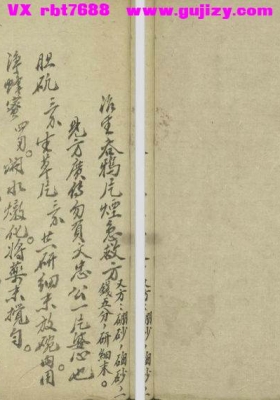 VX rbt7688    www.gujizy.com
治生吞鸦片煙急救方
又方：硼砂，硇砂，一
錢五分，研細末。
此方廣传勿負文忠公一片婆心也
胆矾三分生草片三分 共研細末放碗内用
淨蜂蜜四兩。開水燉化將藥末攪勻。